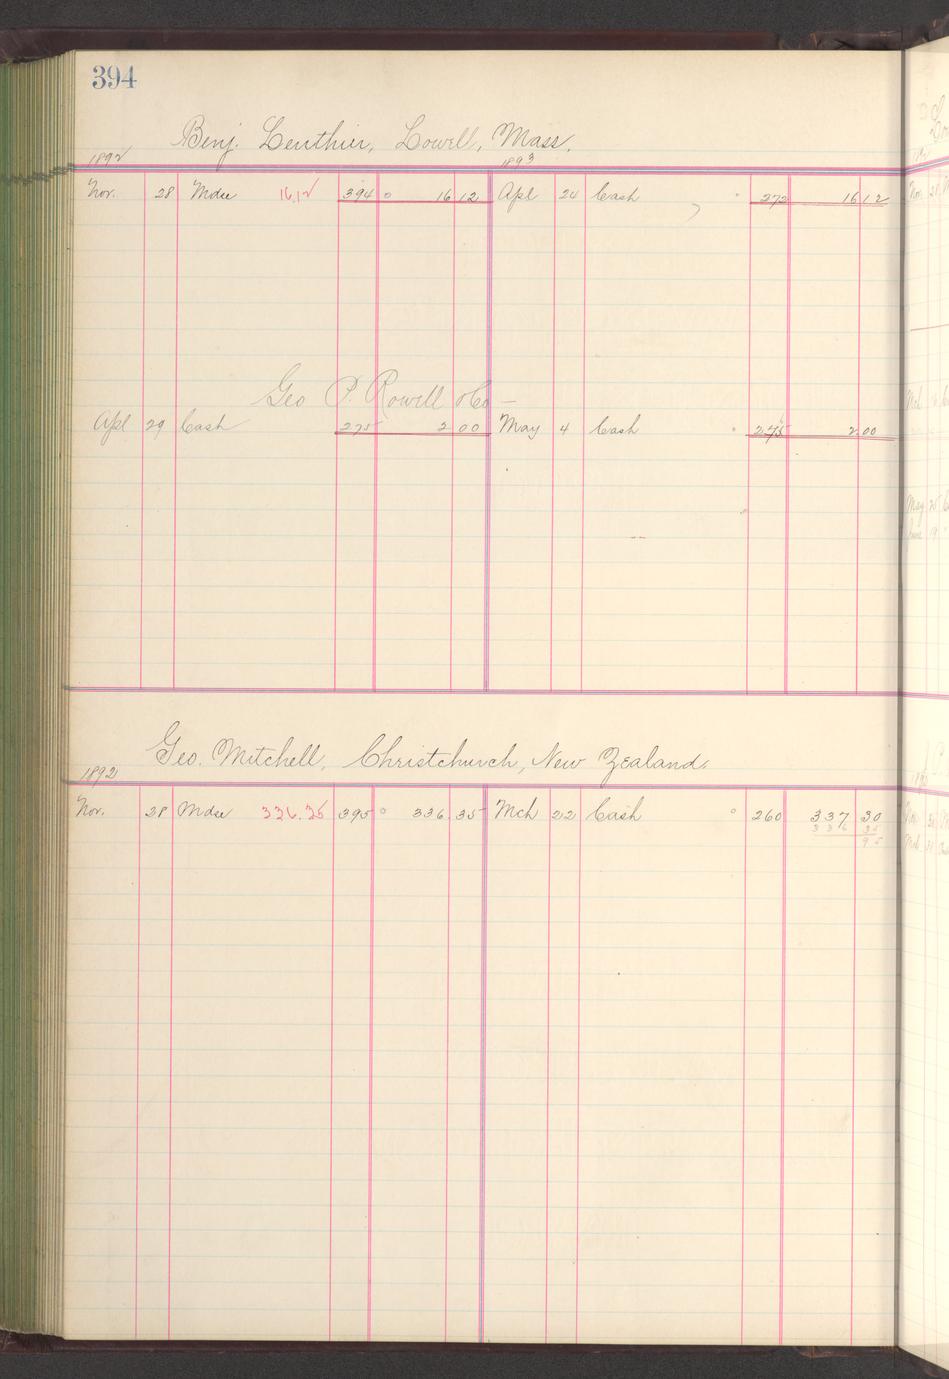 394
Benj. Lenthier, Lowell, Mass.
1892 1893
Nov. 28 Mdse 16.12 394 0 16 12 Apl 24 Cash 272 16 12
Geo P. Rowell & Co —
Apl 29 Cash 275 2 00 May 4 Cash 275 2 00
Geo. Mitchell, Christchurch, New Zealand.
1892
Nov. 28 Mdse 336.35 395 0 336 35 Mch 22 Cash 0 260 337 30
336 35
95